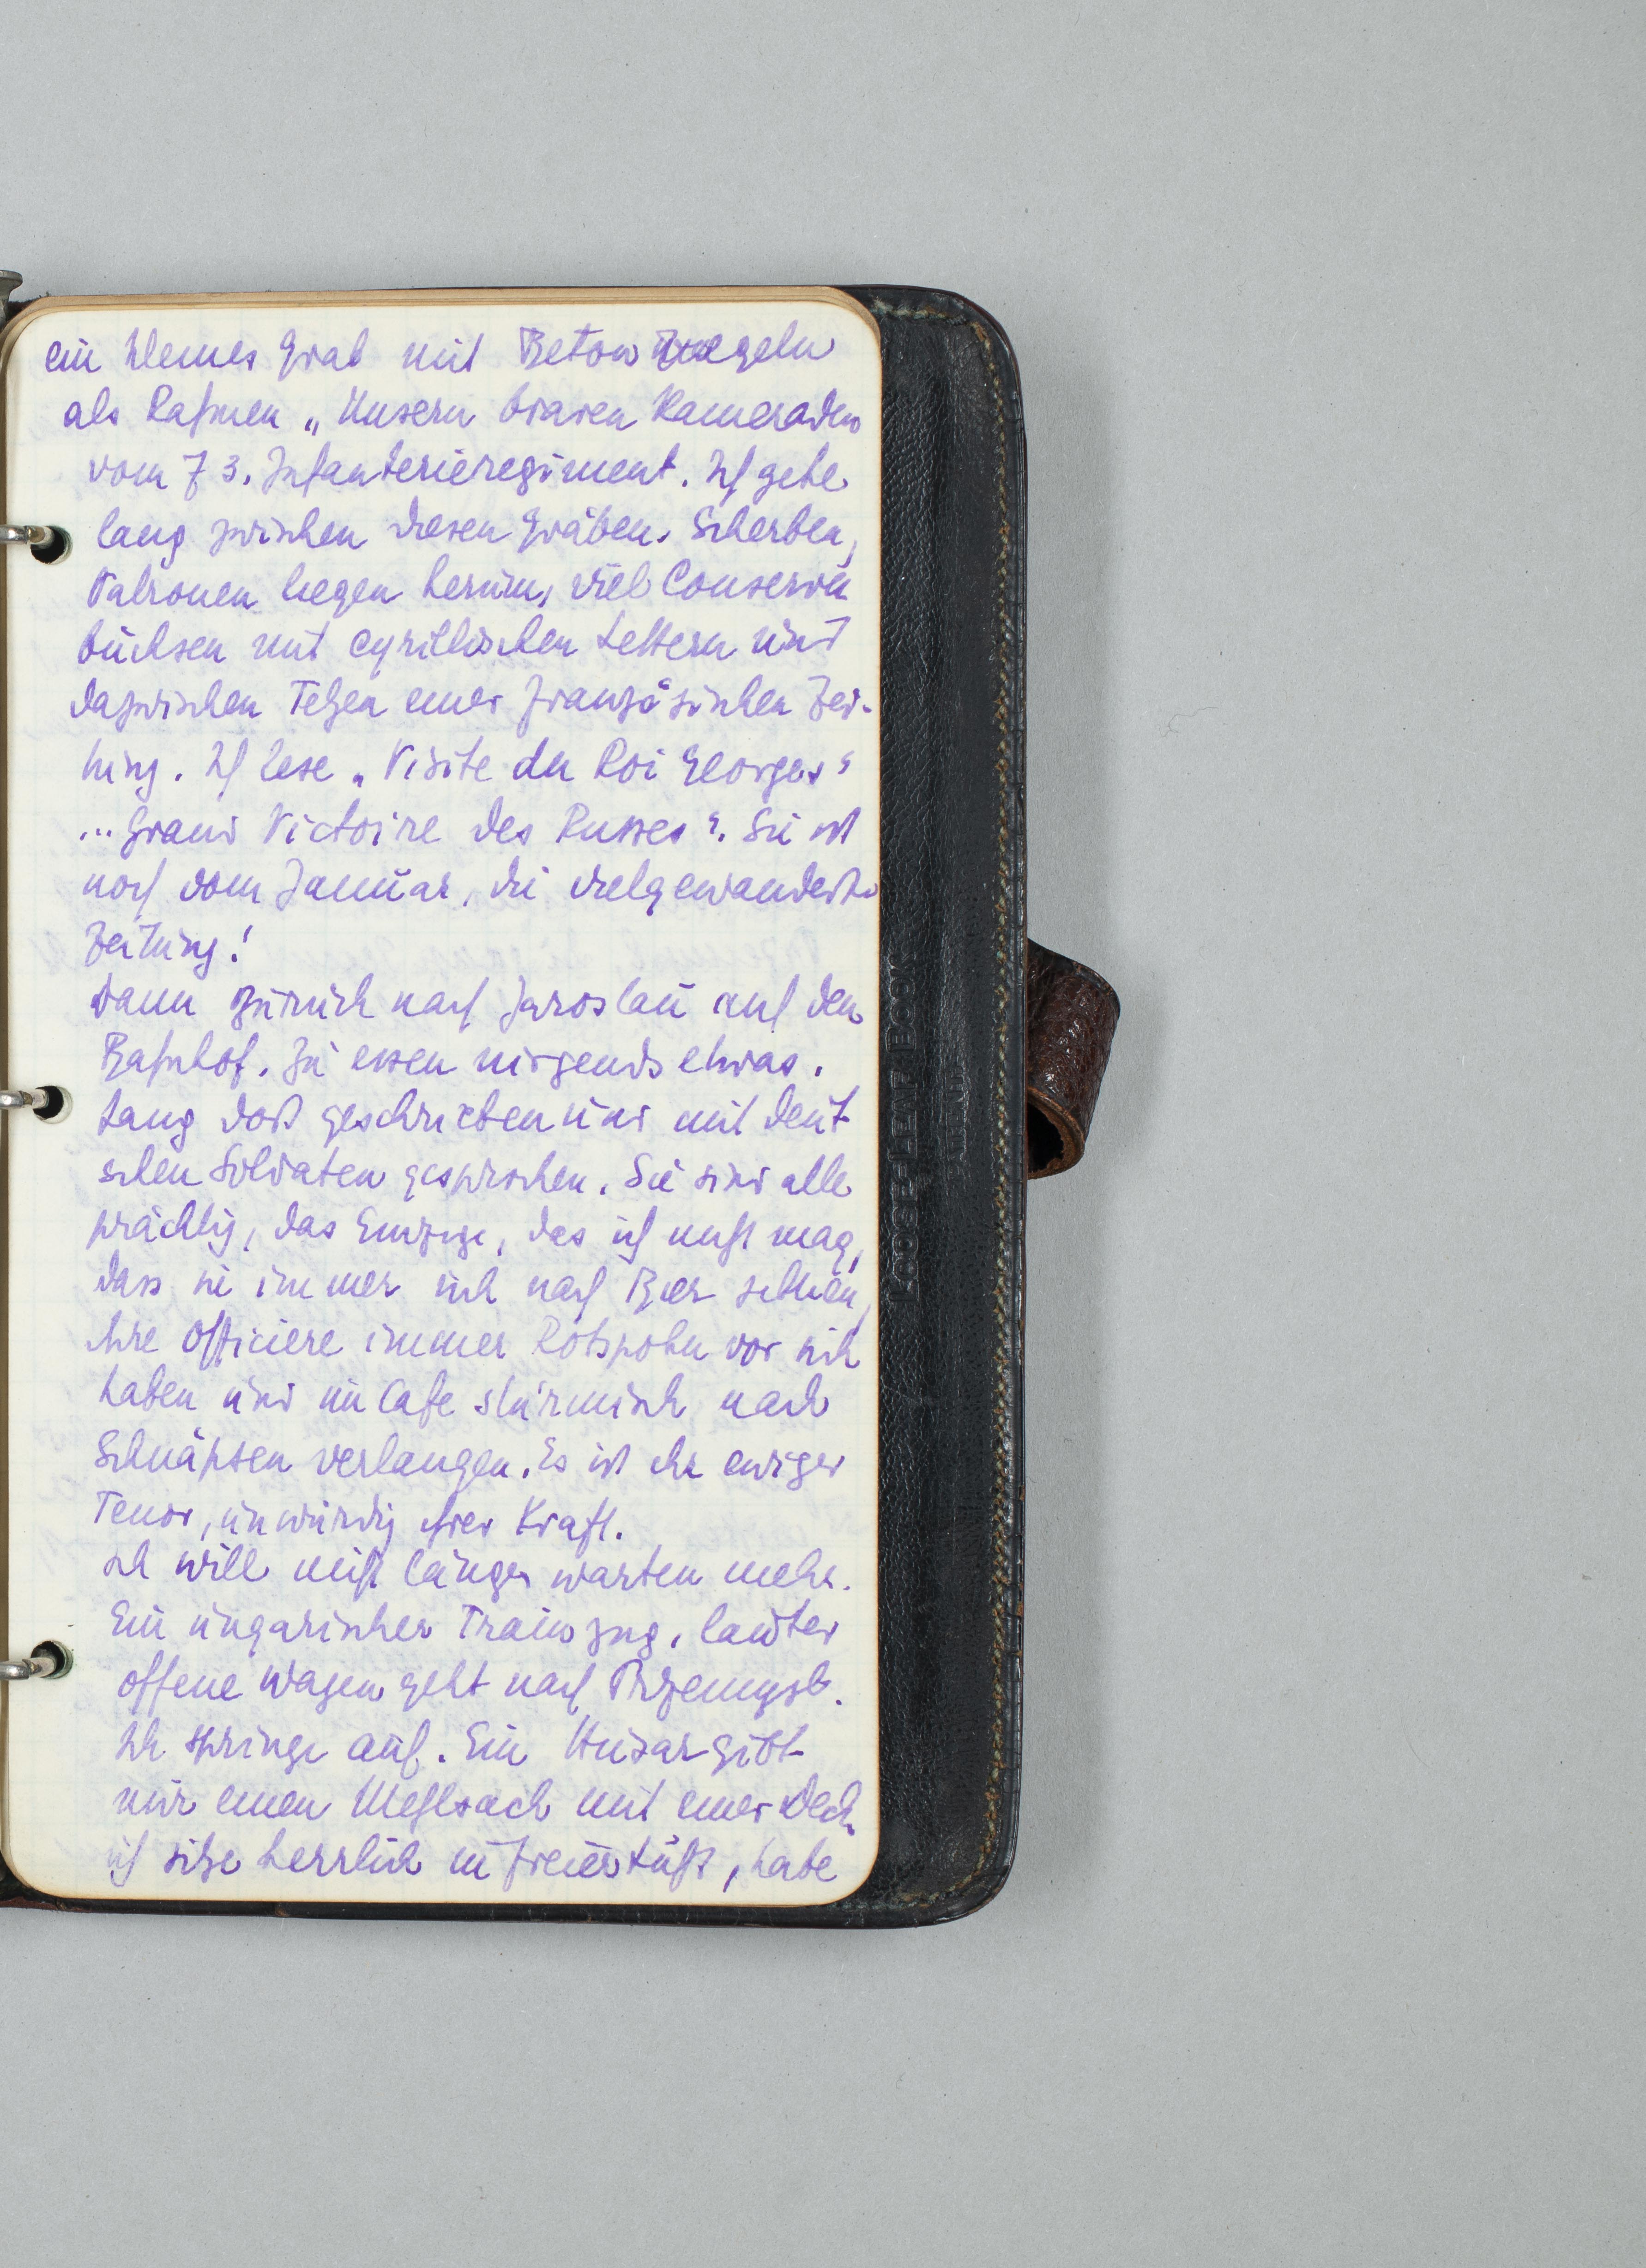 ein kleines Grab mit Betonziegeln
als Rahmen „Unsern braven Kameraden
vom 73. Infanterieregiment. Ich gehe
lang zwischen diesen Gräben. Scherben,
Patronen liegen herum, viel Conserven
büchsen mit cyrillischen Lettern und
dazwischen Fetzen einer französischen Zei-
tung. Ich lese „Visite du Roi Georges“
... Grand Victoire des Russes“. Sie ist
noch vom Januar, die vielgewanderte
Zeitung!
Dann zurück nach Jaroslau auf den
Bahnhof. Zu essen nirgends etwas.
Lang dort geschrieben und mit deut
schen Soldaten gesprochen. Sie sind alle
prächtig, das Einzige, das ich nicht mag,
dass sie immer sich nach Bier sehnen,
ihre Officiere immer Rotspohn vor sich
haben und im Cafe stürmisch nach
Schnäpsen verlangen. Es ist ihr ewiger
Tenor, unwürdig ihrer Kraft.
Ich will nicht länger warten mehr.
Ein ungarischer Trainzug, lauter
offene Wagen geht nach Przemysl.
Ich springe auf. Ein Husar gibt
mir einen Mehlsack mit einer Deck
ich sitze herrlich in freier Luft, habe
LOOSE-LEAF BOOK